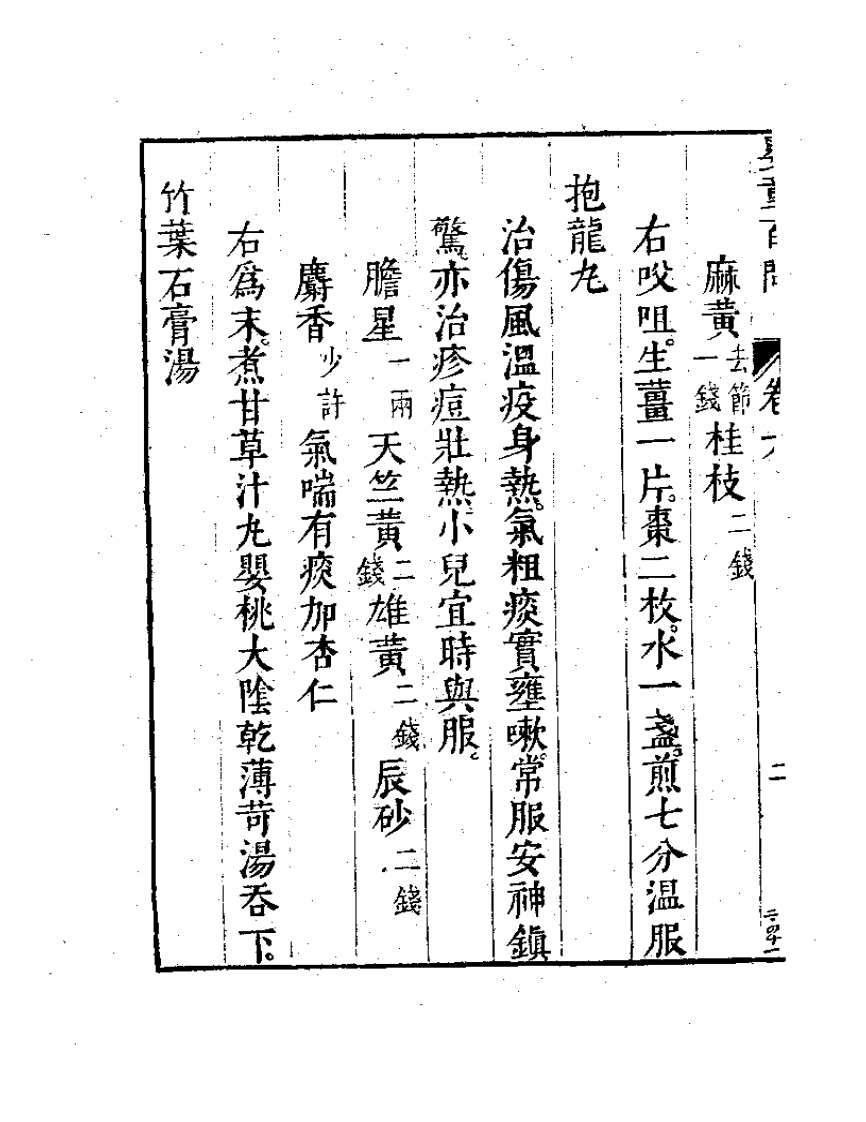 嬰童百問 卷六 二
麻黃去節一錢桂枝二錢
右㕮咀生薑一片。棗二枚。水一盞。煎七分溫服
抱龍九
治傷風溫疫身熱。氣粗痰實壅嗽。常服安神鎭
驚。亦治疹痘壯熱。小兒宜時與服。
膽星一兩天竺黃二錢雄黃二錢辰砂二錢
麝香少許氣喘有痰加杏仁
右爲末。煮甘草汁九嬰桃大陰乾薄苛湯吞下。
竹葉石膏湯